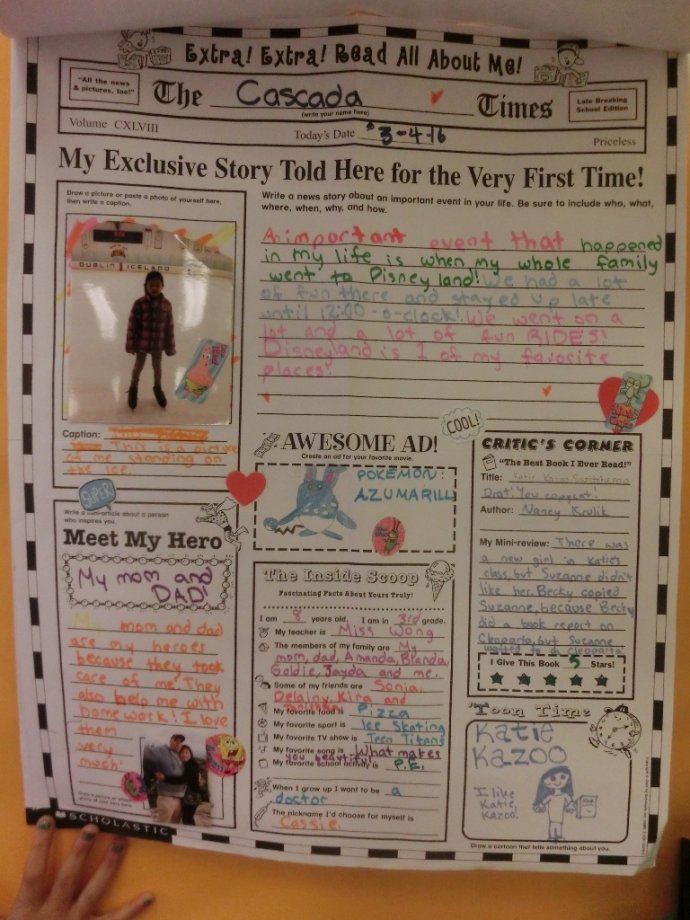 Extra! Extra! Read All About Me!
"All the news
& pictures, too!"
The Cascada Times
(write your name here)
Late Breaking
School Edition
Volume CXLVIII
Today's Date 3-4-16
Priceless
My Exclusive Story Told Here for the Very First Time!
Draw a picture or paste a photo of yourself here,
then write a caption.
DUBLIN ICELAND
Caption:
This is a picture
of me standing on
the ice.
Write a news story about an important event in your life. Be sure to include who, what,
where, when, why, and how.
An important event that happened
in my life is when my whole family
went to Disney land! We had a lot
of fun there and stayed up late
until 12:00-o-clock! We went on a
lot and a lot of fun RIDES!
Disneyland is 1 of my favorite
places!
COOL!
SUPER
AWESOME AD!
Create an ad for your favorite movie.
POKEMON:
AZUMARILL
CRITIC'S CORNER
"The Best Book I Ever Read!"
Title: Katie Kazoo
Drat! You copycat!
Author: Nancy Krulik
My Mini-review: There was
a new girl in Katie's
class, but Suzanne didn't
like her. Becky copied
Suzanne, because Becky
did a book report on
Cleopatra, but Suzanne
wanted to do Cleopatra.
I Give This Book 5 Stars!
Write a mini-article about a person
who inspires you.
Meet My Hero
My mom and
DAD!
My mom and dad
are my heroes
because they took
care of me! They
also help me with
homework! I love
them
very
much!
The Inside Scoop
Fascinating Facts About Yours Truly!
I am 8 years old. I am in 3rd grade.
My teacher is Miss Wong
The members of my family are My
mom, dad, Amanda, Blanda,
Goldie, Jayda and me.
Some of my friends are Sonia,
Delainy, Kira and
My favorite food is Pizza
My favorite sport is Ice Skating
My favorite TV show is Teen Titans
My favorite song is What makes
you beautiful
My favorite school activity is P.E.
When I grow up I want to be a
doctor
The nickname I'd choose for myself is
Cassie.
Toon Time
Katie
Kazoo
I like
Katie,
Kazoo.
Draw a cartoon that tells something about you.
SCHOLASTIC